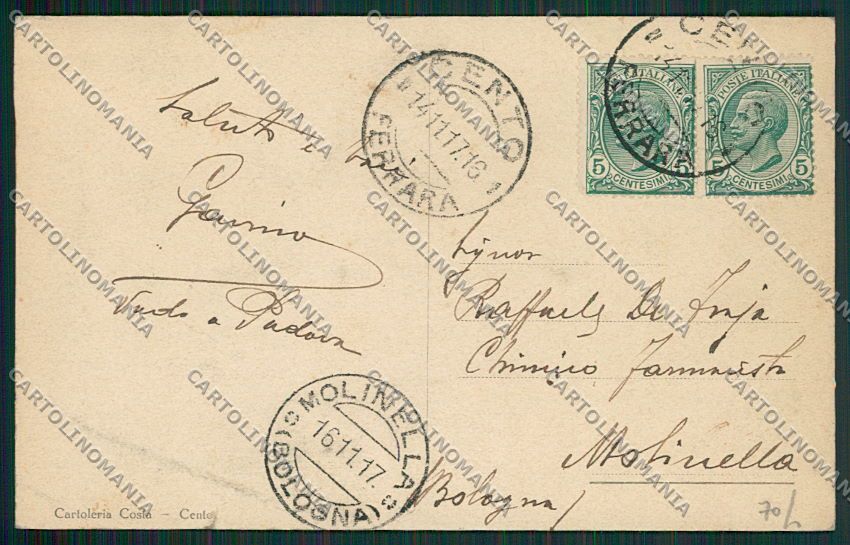 Saluti e baci
Gavino
Vado a Padova
CENTO
14.11.17.16
FERRARA
CENTO
FERRARA
POSTE ITALIANE
5 CENTESIMI 5
5 CENTESIMI 5
Signor
Raffaele De
Chimico Farmacista
Molinella
Bologna
MOLINELLA
16.11.17.
(BOLOGNA)
Cartoleria Costa - Cento
70
CARTOLINOMANIA